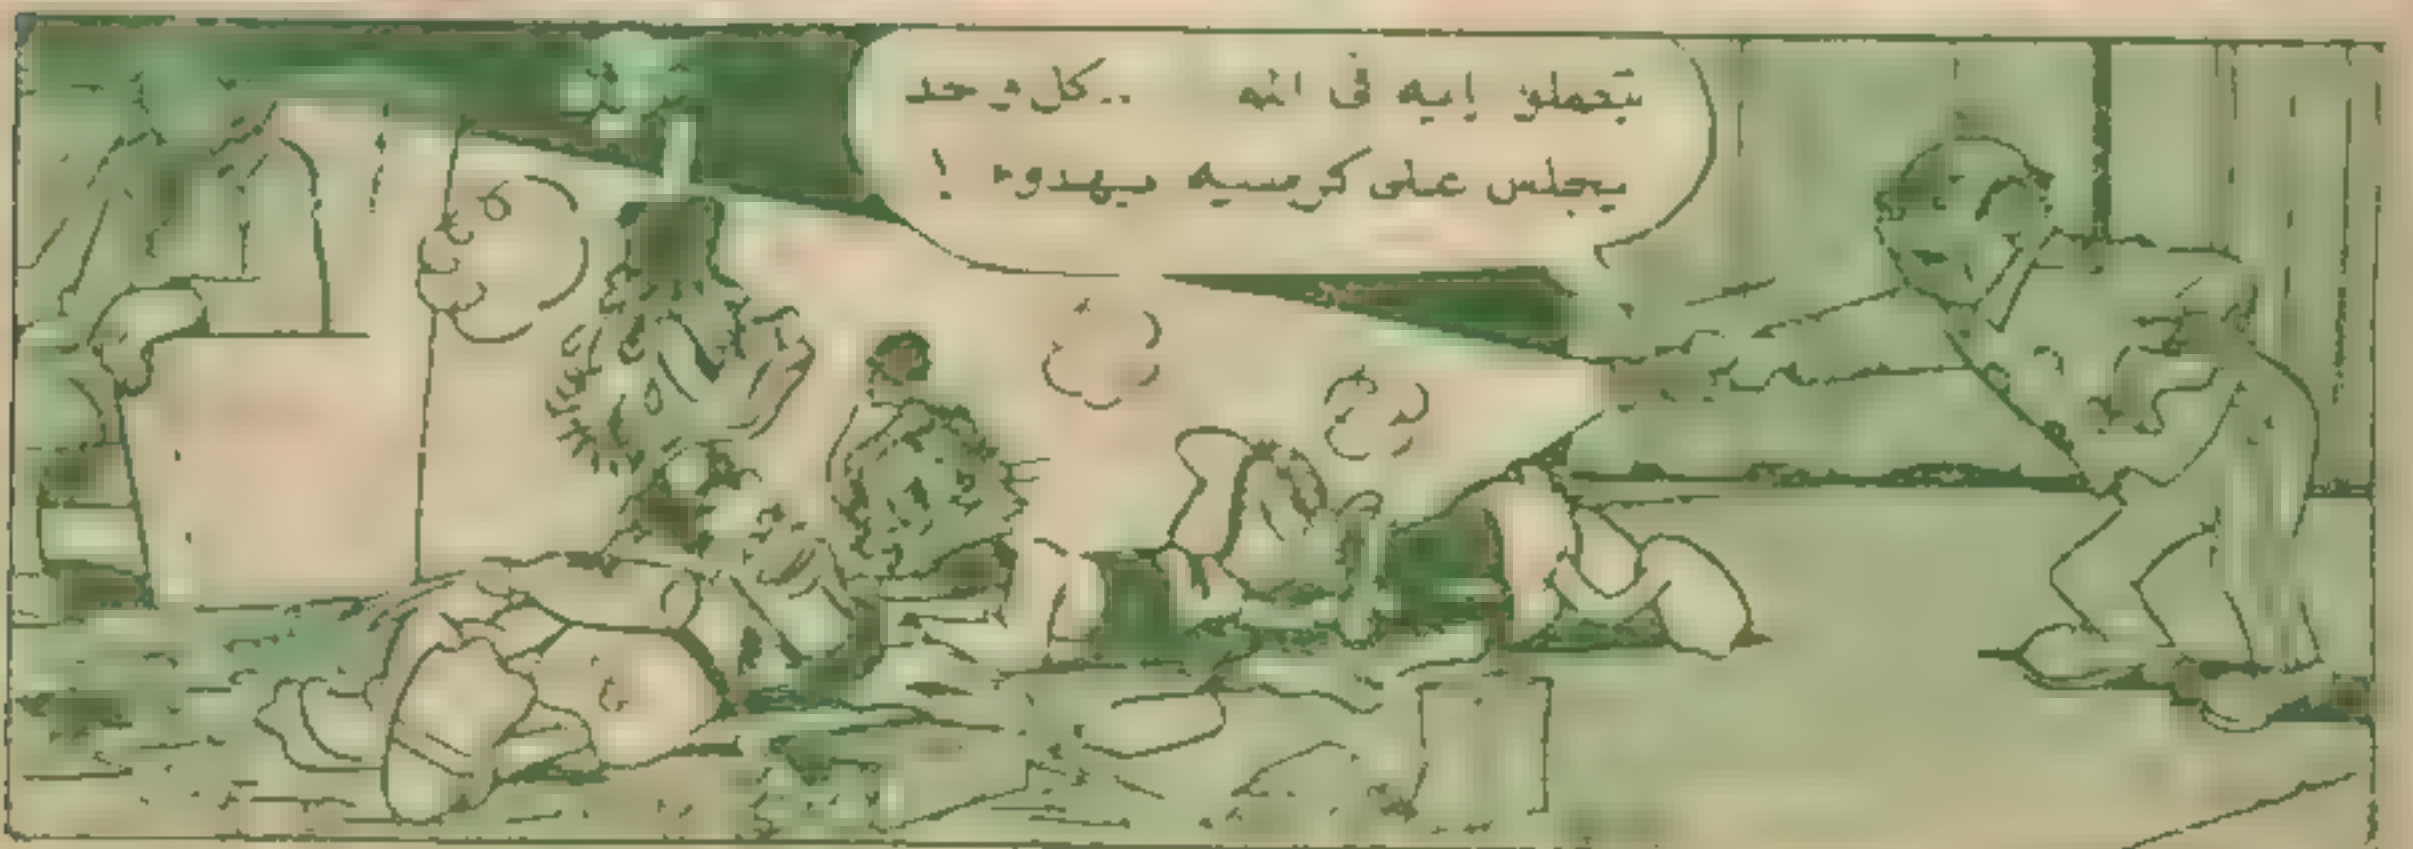 بتعملو إيه فى انه ..كل وحد
يجلس على كرسيه بهدوء !